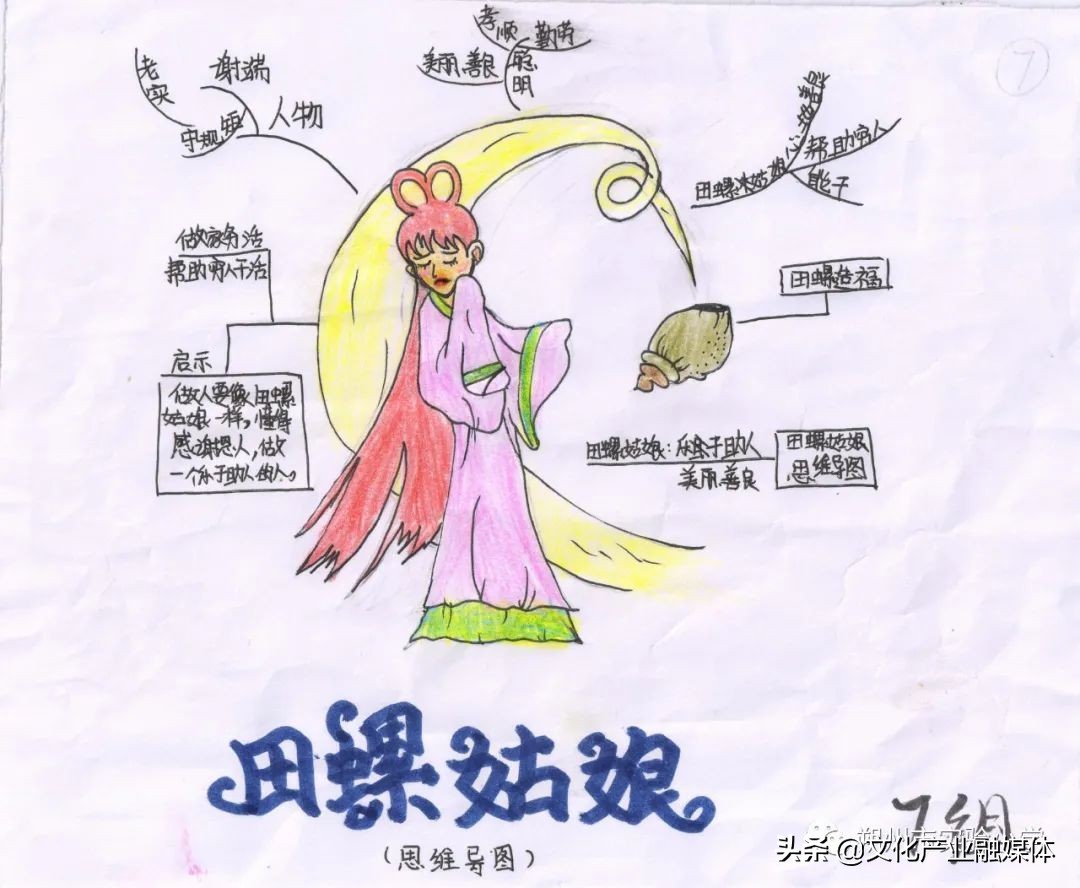 孝顺
勤劳
美丽善良
聪明
7
老实
谢端
守规矩
人物
心地善良
帮助穷人
田螺姑娘
能干
做家务活
帮助穷人干活
田螺造福
启示
做人要像田螺
姑娘一样,懂得
感谢恩人,做
一个乐于助人的人。
田螺姑娘:乐于助人
美丽善良
田螺姑娘
思维导图
田螺姑娘
(思维导图)
7组
朔州市实验小学
头条@文化产业融媒体